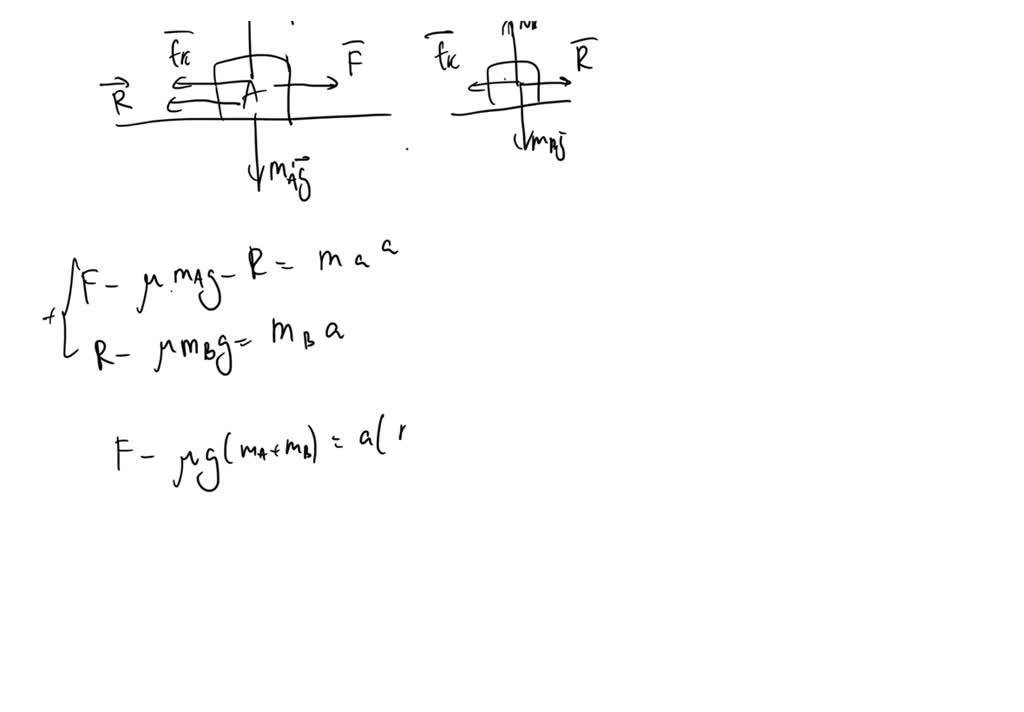 f⃗k F⃗ R⃗ A mAg⃗
f⃗k R⃗ mBg⃗
F - μ mAg - R = ma a
+
R - μmBg = mB a
F - μg(mA+mB) = a(